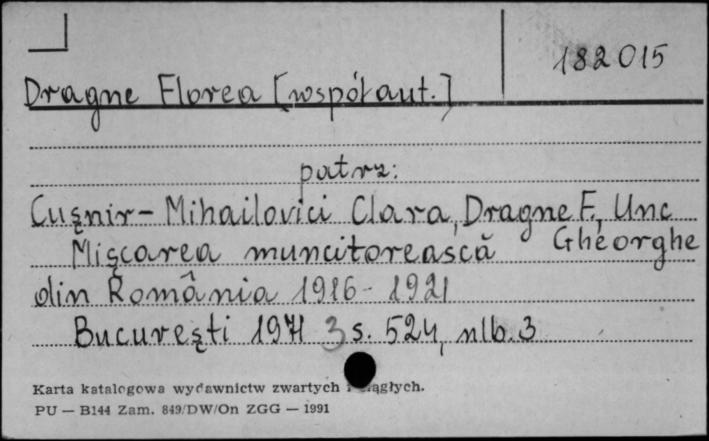 182015
Dragne Florea [współaut.]
patrz:
Cuşnir-Mihailovici Clara, Dragne F., Unc
Mişcarea muncitorească Gheorghe
din România 1916-1921
Bucureşti 1971 3 s. 524, nlb. 3
Karta katalogowa wydawnictw zwartych i ciągłych.
PU — B144 Zam. 849/DW/On ZGG — 1991